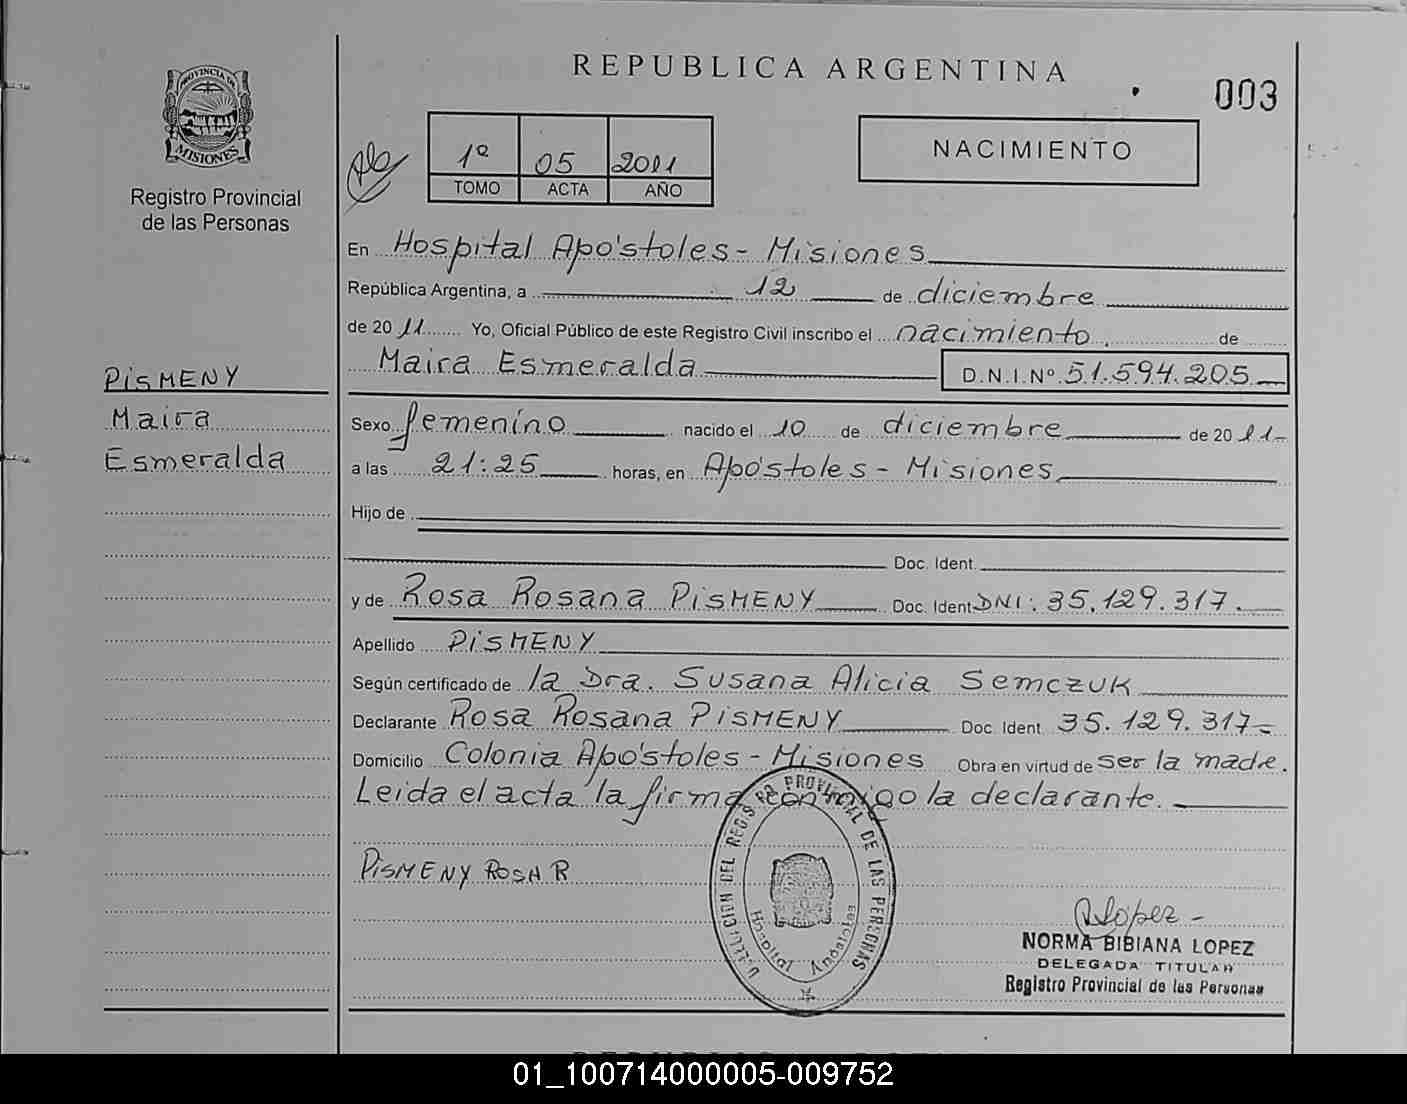 REPUBLICA ARGENTINA
003
PROVINCIA DE
MISIONES
Registro Provincial
de las Personas
1º 05 2011
TOMO ACTA AÑO
NACIMIENTO
En Hospital Apóstoles - Misiones
República Argentina, a 12 de diciembre
de 20 11 Yo, Oficial Público de este Registro Civil inscribo el nacimiento de
Maira Esmeralda D.N.I.Nº 51.594.205
PiSMENY
Maira
Esmeralda
Sexo femenino nacido el 10 de diciembre de 20 11-
a las 21:25 horas, en Apóstoles - Misiones
Hijo de
Doc. Ident.
y de Rosa Rosana PiSMENY Doc. Ident DNI: 35.129.317.
Apellido PiSMENY
Según certificado de la Dra. Susana Alicia Semczuk
Declarante Rosa Rosana PiSMENY Doc. Ident 35.129.317-
Domicilio Colonia Apóstoles - Misiones Obra en virtud de ser la madre.
Leida el acta la firma conmigo la declarante.
PiSMENY ROSA R
DEL REGISTRO PROVINCIAL DE LAS PERSONAS
Hospital Apóstoles
López -
NORMA BIBIANA LOPEZ
DELEGADA TITULAR
Registro Provincial de las Personas
01_100714000005-009752